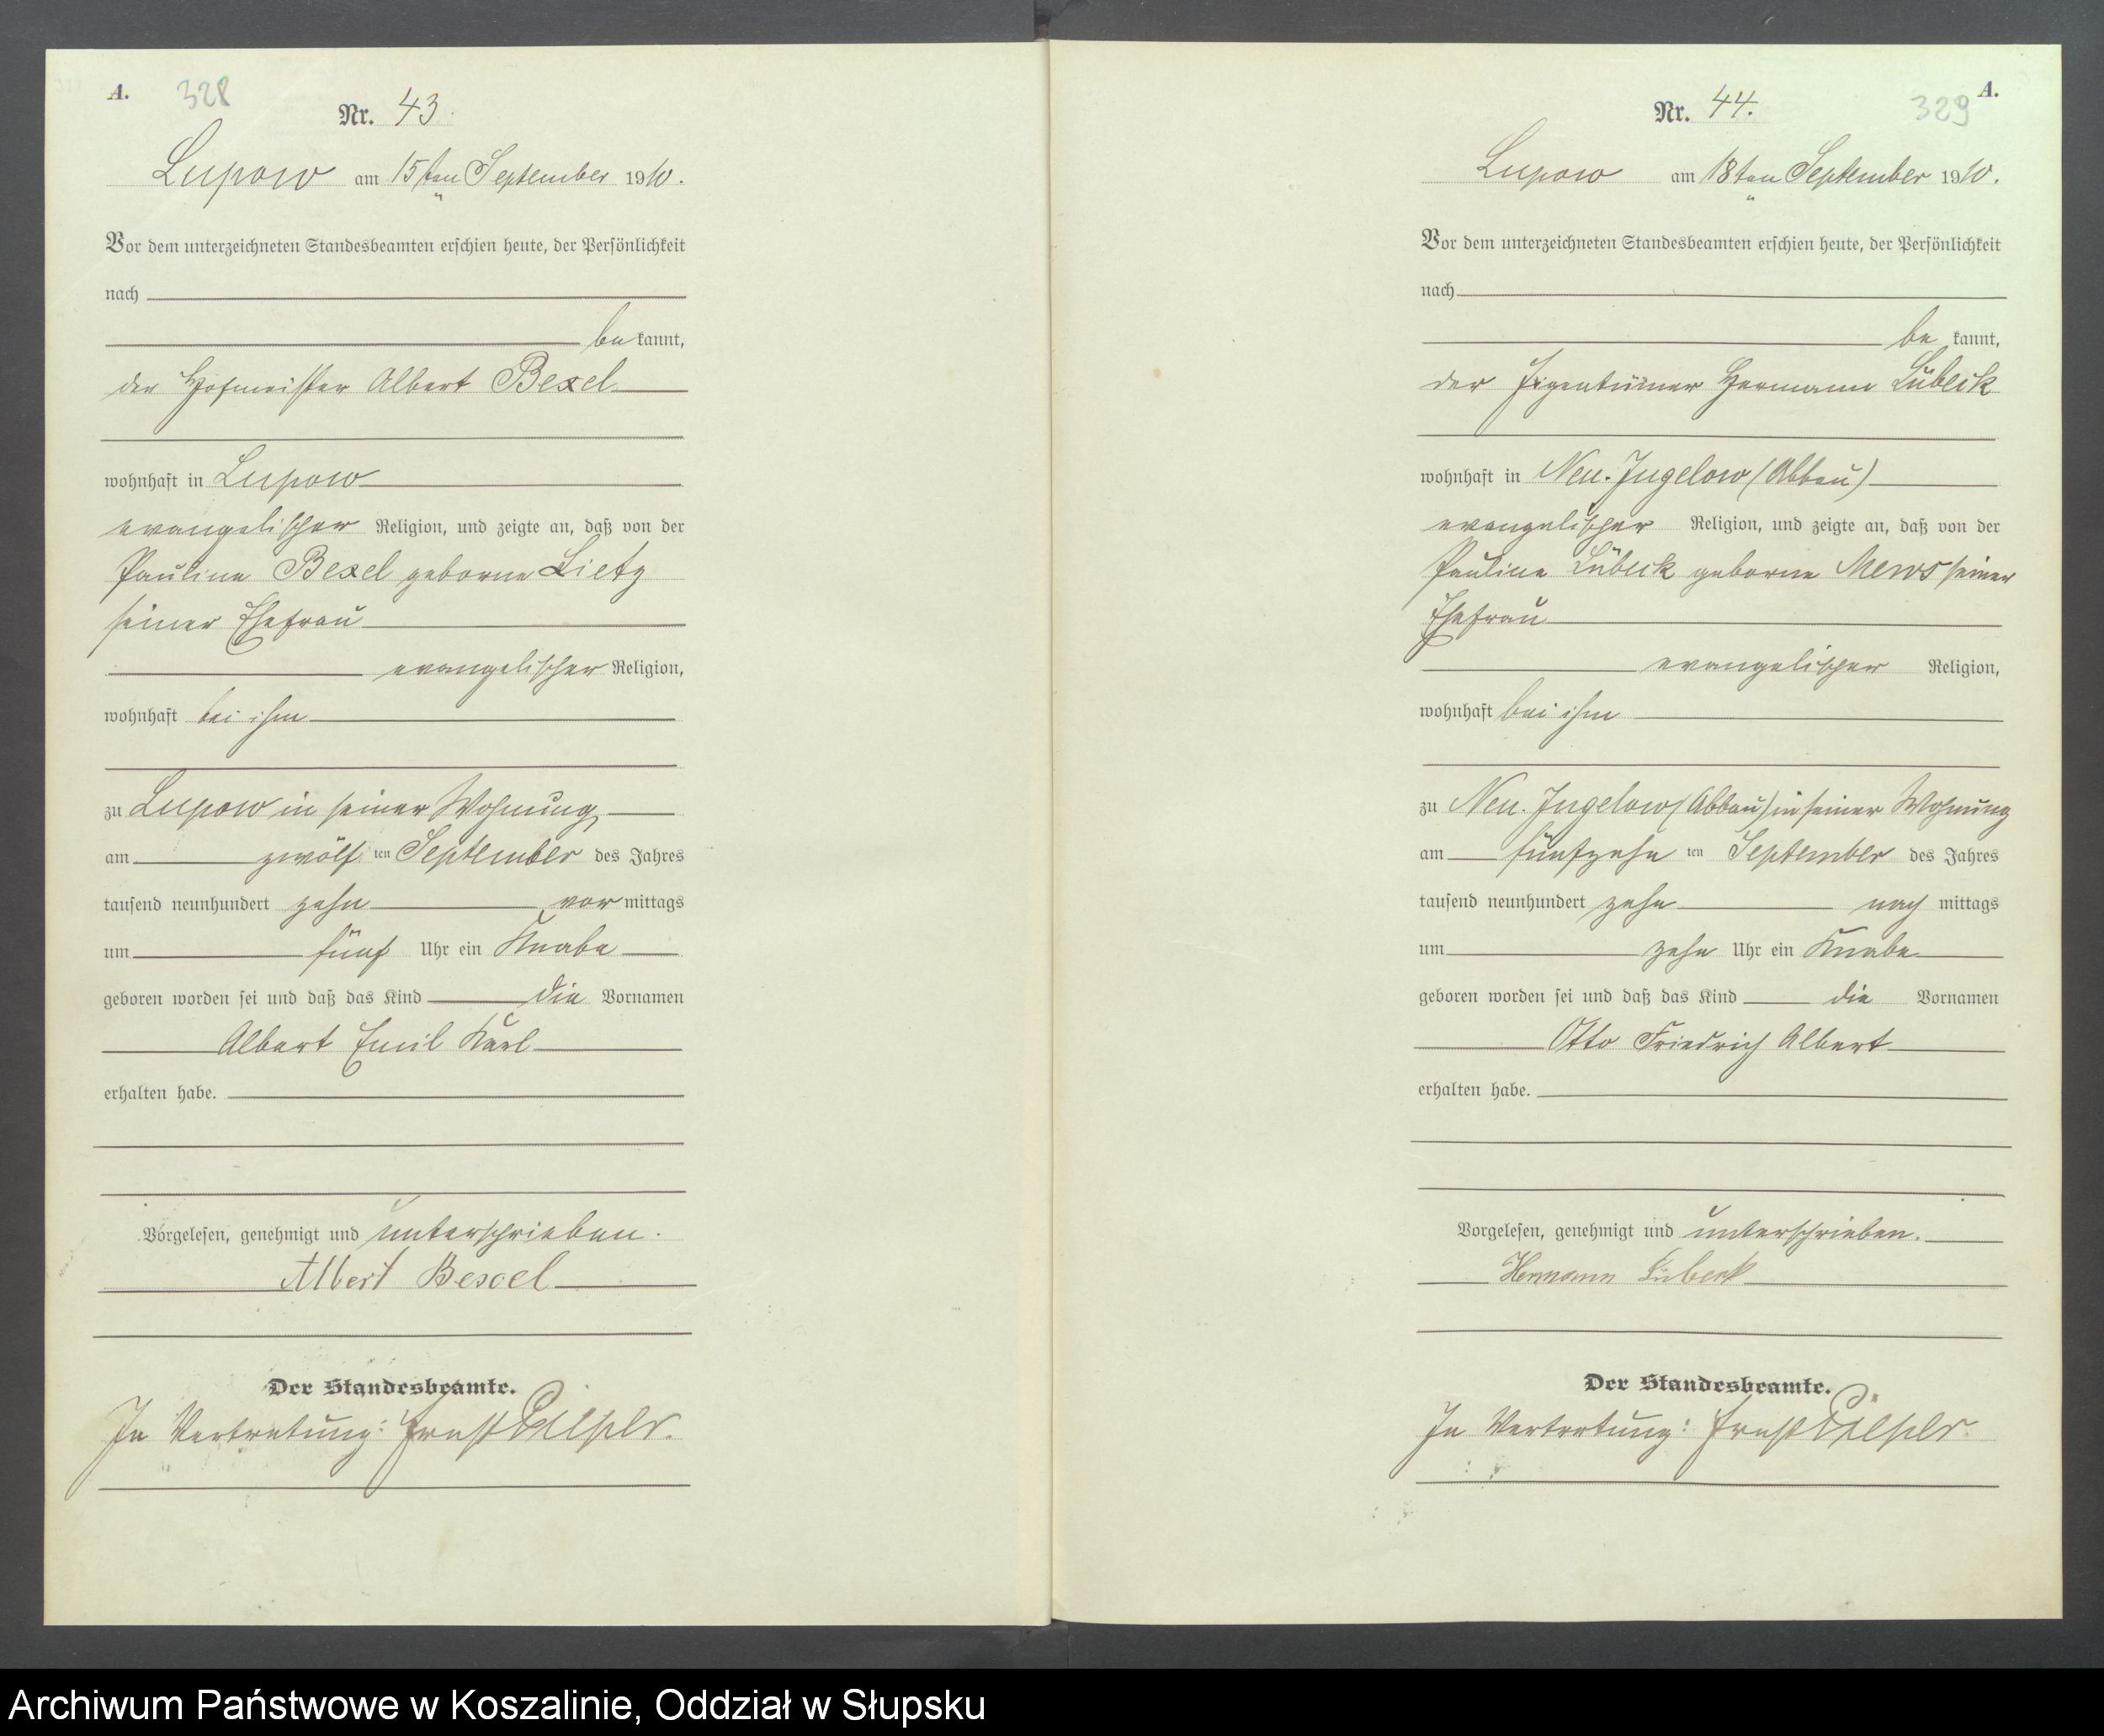 A. 328
Nr. 43.
Lupow am 15ten September 1910.
Vor dem unterzeichneten Standesbeamten erschien heute, der Persönlichkeit
nach
be kannt,
der Hofmeister Albert Bexel
wohnhaft in Lupow
evangelischer Religion, und zeigte an, daß von der
Pauline Bexel geborne Lietz
seiner Ehefrau
evangelischer Religion,
wohnhaft bei ihm
zu Lupow in seiner Wohnung
am zwölf ten September des Jahres
tausend neunhundert zehn vor mittags
um fünf Uhr ein Knabe
geboren worden sei und daß das Kind die Vornamen
Albert Emil Karl
erhalten habe.
Vorgelesen, genehmigt und unterschrieben.
Albert Bexel
Der Standesbeamte.
In Vertretung: Ernst
A.
329
Nr. 44.
Lupow am 18ten September 1910.
Vor dem unterzeichneten Standesbeamten erschien heute, der Persönlichkeit
nach
be kannt,
der Eigentümer Hermann Lübeck
wohnhaft in Neu. Jugelow (Abbau)
evangelischer Religion, und zeigte an, daß von der
Pauline Lübeck geborne Mews seiner
Ehefrau
evangelischer Religion,
wohnhaft bei ihm
zu Neu. Jugelow (Abbau) in seiner Wohnung
am fünfzehn ten September des Jahres
tausend neunhundert zehn nach mittags
um zehn Uhr ein Knabe
geboren worden sei und daß das Kind die Vornamen
Otto Friedrich Albert
erhalten habe.
Vorgelesen, genehmigt und unterschrieben.
Hermann Lübeck
Der Standesbeamte.
In Vertretung: Ernst
Archiwum Państwowe w Koszalinie, Oddział w Słupsku